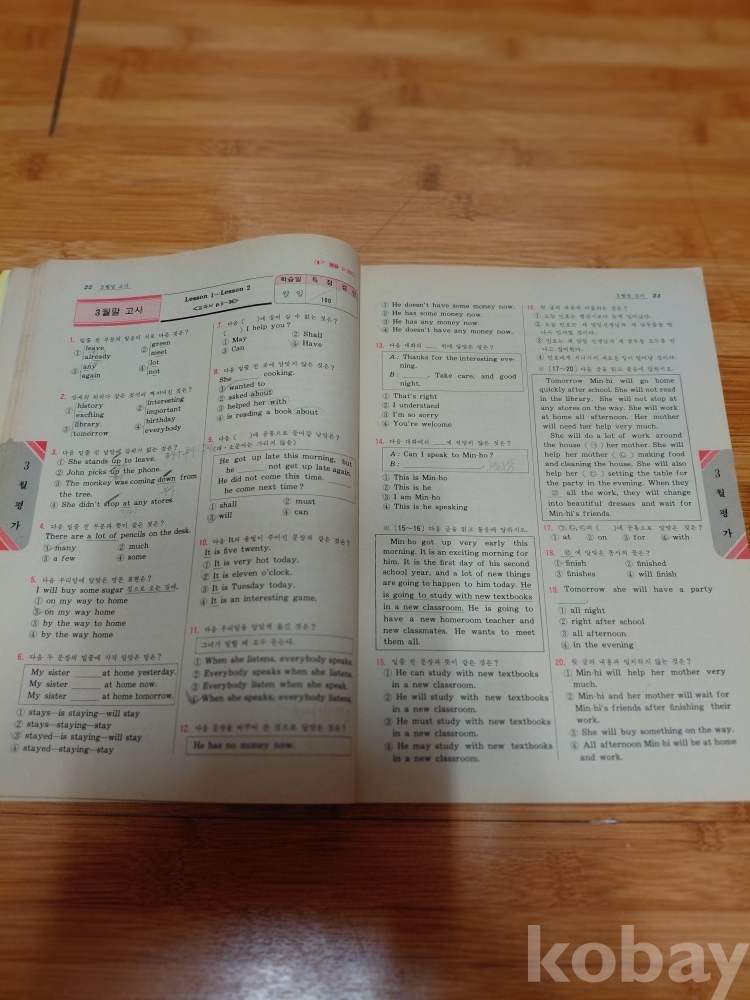 22 3월말 고사
3월말 고사
Lesson 1—Lesson 2
학습일
월 일
100
1. 밑줄 친 부분의 발음이 서로 다른 것은?
① leave
already
② green
meet
③ any
again
④ lot
not
2.
① history
exciting
② interesting
important
③ library
tomorrow
④ birthday
everybody
3. 다음 밑줄 친 낱말에 강세가 없는 것은?
① She stands up to leave.
② John picks up the phone.
③ The monkey was coming down from
the tree.
④ She didn't stop at any stores.
4. 다음 밑줄 친 부분과 뜻이 같은 것은?
There are a lot of pencils on the desk.
① many ② much
③ a few ④ some
5. 다음 우리말에 알맞은 영문 표현은?
I will buy some sugar 집으로 오는 길에.
① on my way to home
② on my way home
③ by the way to home
④ by the way home
6. 다음 두 문장의 밑줄에 각각 알맞은 말은?
My sister ____ at home yesterday.
My sister ____ at home now.
My sister ____ at home tomorrow.
① stays—is staying—will stay
② stays—staying—stay
③ stayed—is staying—will stay
④ stayed—staying—stay
7. 다음 ( )에 들어 갈 수 없는 것은?
( ) I help you?
① May ② Shall
③ Can ④ Have
8. 다음 밑줄 친 곳에 알맞지 않은 것은?
She ____ cooking.
① wanted to
② asked about
③ helped her with
④ is reading a book about
9. 다음 ( )에 공통으로 들어갈 낱말은?
(대·소문자는 가리지 않음)
He got up late this morning, but
he ____ not get up late again.
He did not come this time. ____
he come next time?
① shall ② must
③ will ④ can
10. 다음 It의 용법이 주어진 문장과 같은 것은?
It is five twenty.
① It is very hot today.
② It is eleven o'clock.
③ It is Tuesday today.
④ It is an interesting game.
11. 다음 우리말을 알맞게 옮긴 것은?
그녀가 말할 때 모두 듣는다.
① When she listens, everybody speaks.
② Everybody speaks when she listens.
③ Everybody listen when she speak.
④ When she speaks, everybody listens.
12. 다음 문장을 바꾸어 쓴 것으로 알맞은 것은?
He has no money now.
3월평가
3월말 고사 23
① He doesn't have some money now.
② He has some money now.
③ He has any money now.
④ He doesn't have any money now.
13. 다음 대화의 ____ 위에 알맞은 말은?
A: Thanks for the interesting eve-
ning.
B: ____. Take care, and good
night.
① That's right
② I understand
③ I'm so sorry
④ You're welcome
14. 다음 대화에서 ____에 적당치 않은 것은?
A: Can I speak to Min-ho?
B: ____.
① This is Min-ho
② This is he
③ I am Min-ho
④ This is he speaking
※ [15~16] 다음 글을 읽고 물음에 답하시오.
Min-ho got up very early this
morning. It is an exciting morning for
him. It is the first day of his second
school year, and a lot of new things
are going to happen to him today. He
is going to study with new textbooks
in a new classroom. He is going to
have a new homeroom teacher and
new classmates. He wants to meet
them all.
15. 밑줄 친 문장과 뜻이 같은 것은?
① He can study with new textbooks
in a new classroom.
② He will study with new textbooks
in a new classroom.
③ He must study with new textbooks
in a new classroom.
④ He may study with new textbooks
in a new classroom.
16. 윗 글의 내용과 어울리는 것은?
※ [17~20] 다음 글을 읽고 물음에 답하시오.
Tomorrow Min-hi will go home
quickly after school. She will not read
in the library. She will not stop at
any stores on the way. She will work
at home all afternoon. Her mother
will need her help very much.
She will do a lot of work around
the house (㉠) her mother. She will
help her mother (㉡) making food
and cleaning the house. She will also
help her (㉢) setting the table for
the party in the evening. When they
㉣ all the work, they will change
into beautiful dresses and wait for
Min-hi's friends.
17. ㉠, ㉡, ㉢의 ( )에 공통으로 알맞은 것은?
① at ② on ③ for ④ with
18. ㉣에 알맞은 동사의 꼴은?
① finish ② finished
③ finishes ④ will finish
19. Tomorrow she will have a party
____.
① all night
② right after school
③ all afternoon
④ in the evening
20. 윗 글의 내용과 일치하지 않는 것은?
① Min-hi will help her mother very
much.
② Min-hi and her mother will wait for
Min-hi's friends after finishing their
work.
③ She will buy something on the way.
④ All afternoon Min-hi will be at home
and work.
3월평가
kobay